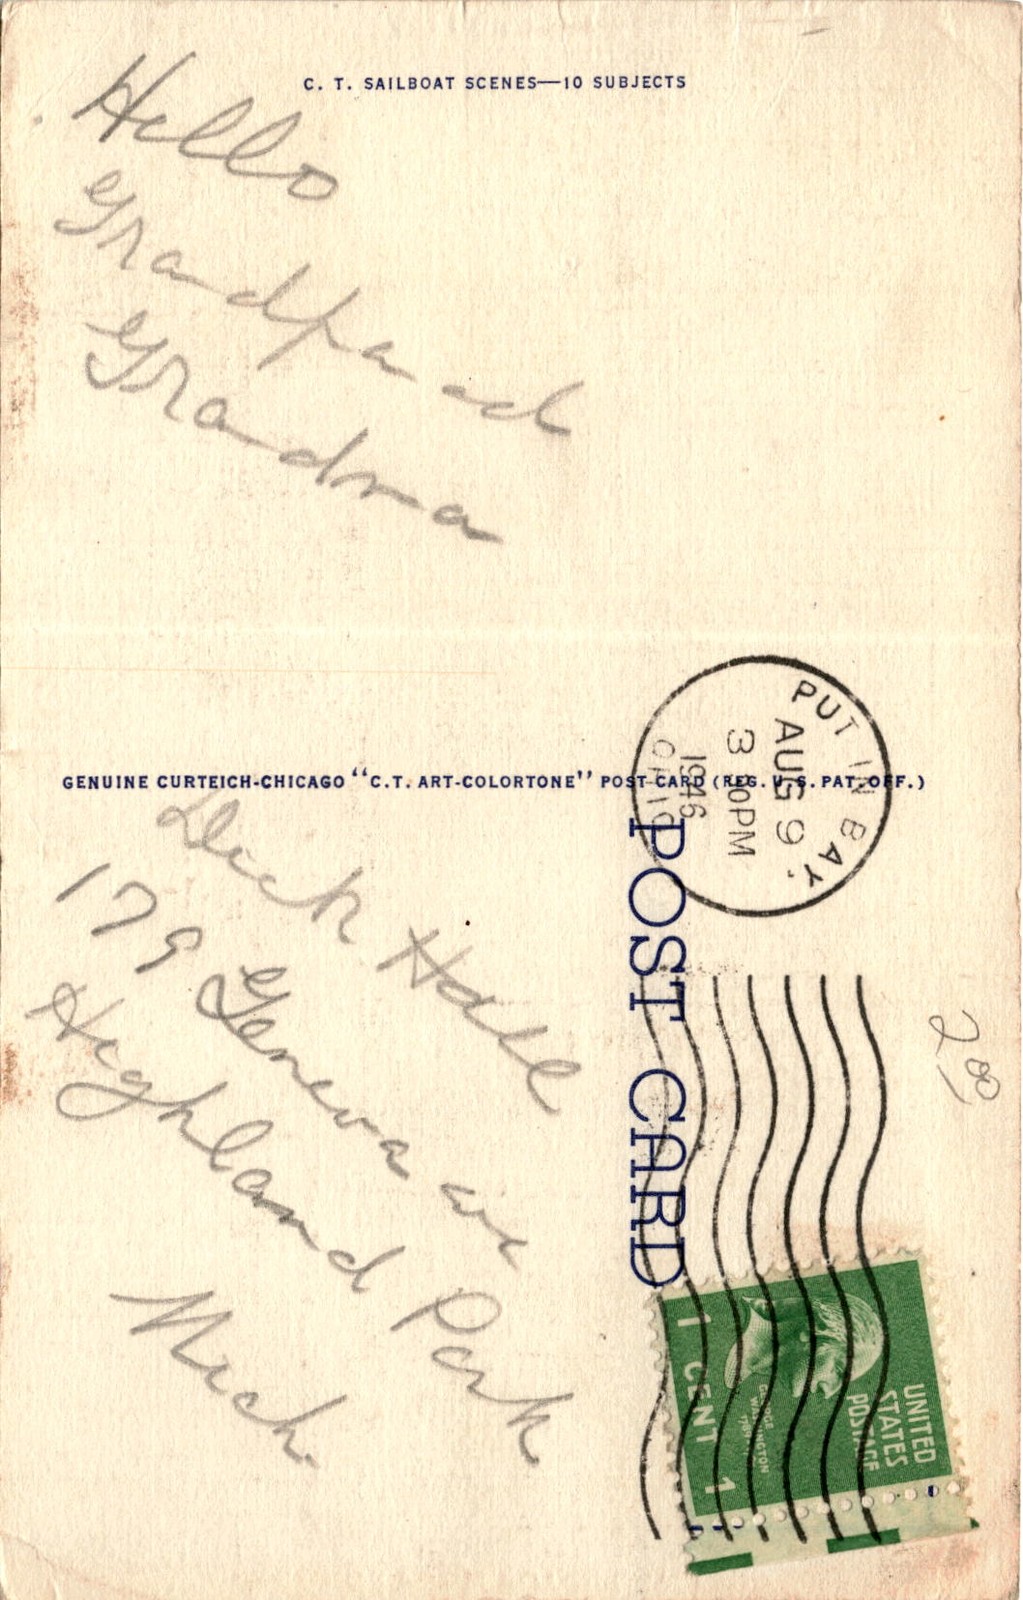 C. T. SAILBOAT SCENES—10 SUBJECTS
Hello
Grandpa ad
Grandma
GENUINE CURTEICH-CHICAGO "C.T. ART-COLORTONE" POST CARD (REG. U.S. PAT. OFF.)
POST CARD
PUT IN BAY,
AUG 9
3 30PM
1946
OHIO
Dick Hall
179 Geneva ave
Highland Park
Mich.
2 00
UNITED
STATES
POSTAGE
GEORGE
WASHINGTON
1 CENT 1